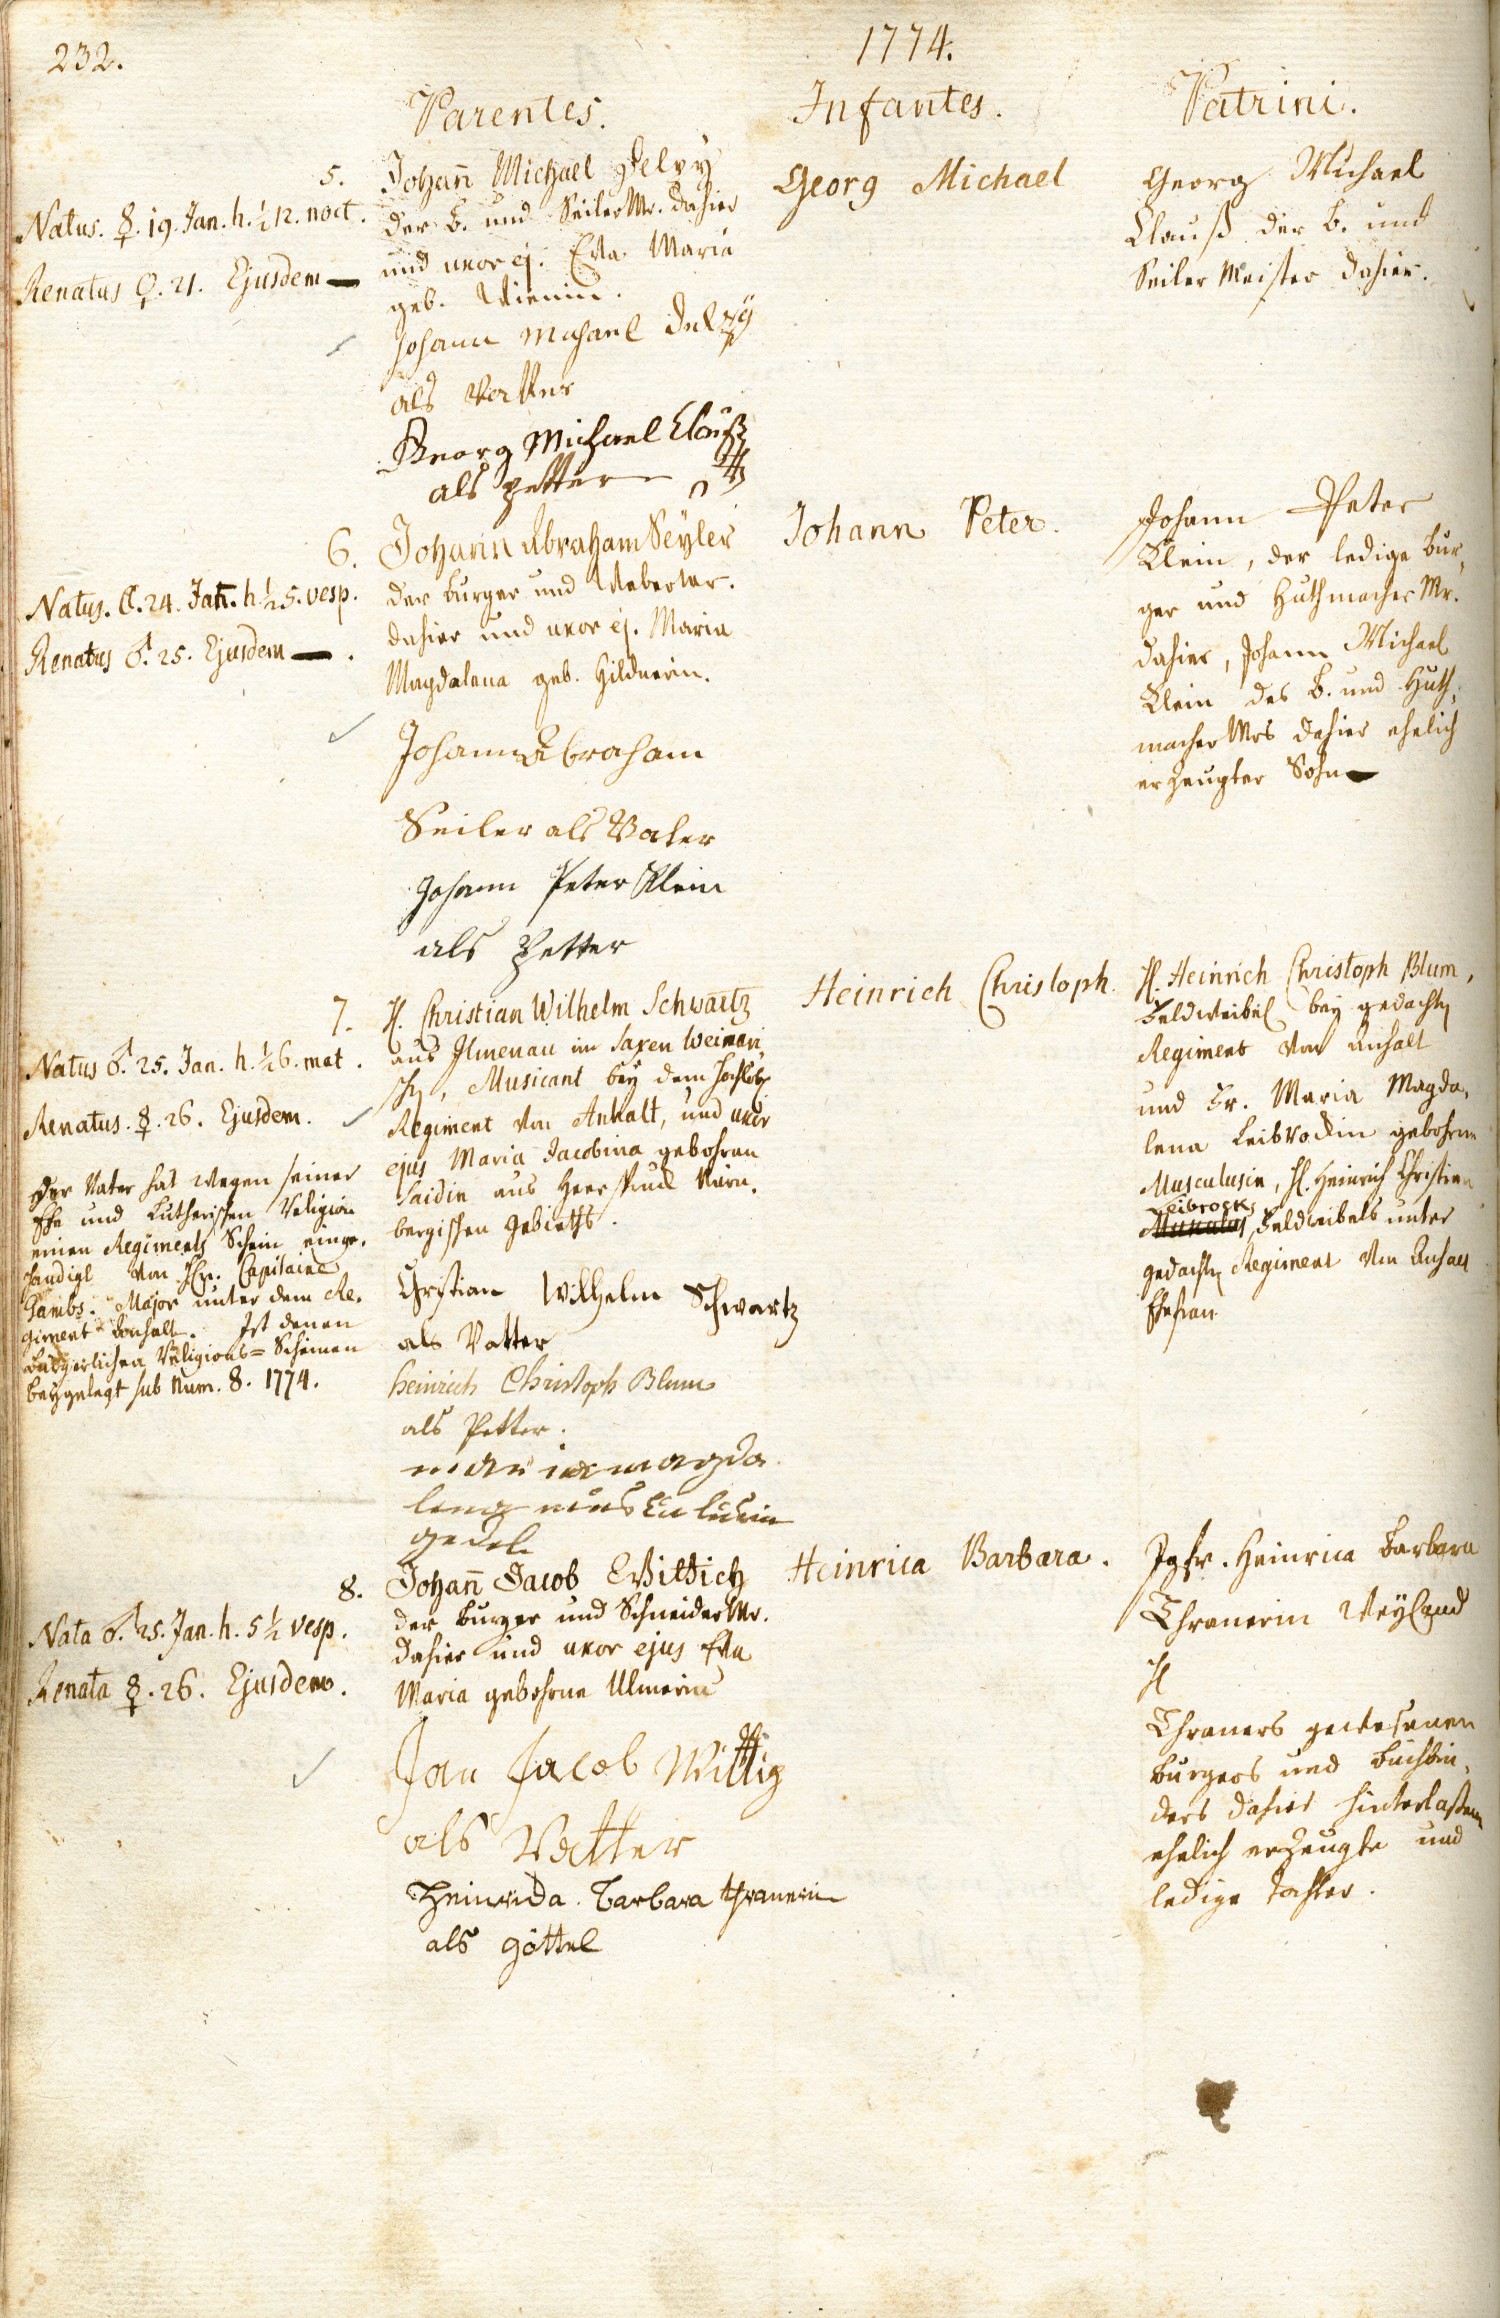 232.
1774.
Parentes.
Infantes.
Patrini.
5.
Natus. ☿. 19. Jan. h. ½ 12. noct.
Renatus ♀. 21. Ejusdem —
Johan̄ Michael Delvy
der B. und Seiler Mr. dahier
und uxor ej. Eva Maria
geb.
Johann Michael
als Vatter
Georg Michael Clauß
als petter
Georg Michael
Georg Michael
Clauß der B. und
Seiler Meister dahier.
6.
Natus. ☾. 24. Jan. h. ½ 5. vesp.
Renatus ♂. 25. Ejusdem — .
Johann Abraham Seyler
der Burger und Weber Mr.
dahier und uxor ej. Maria
Magdalena geb. Hildnerin.
Johann Abraham
Seiler als Vater
Johann Peter Klein
als Petter
Johann Peter.
Johann Peter
Klein, der ledige Bur,
ger und Huthmacher Mr.
dahier, Johann Michael
Klein des B. und Huth,
macher Mrs dahier ehelich
erzeugter Sohn —
7.
Natus ♂. 25. Jan. h. ½ 6. mat.
Renatus. ☿. 26. Ejusdem.
Der Vater hat wegen seiner
Ehe und Lutherischen Religion
einen Regiments Schein einge,
händigt von Hrn. Capitaine
Major unter dem Re,
giment Anhalt. Ist denen
Burgerlichen Religions= Scheinen
beygelegt sub Num. 8. 1774.
H. Christian Wilhelm Schwartz
aus Ilmenau im Saxen Weimari,
schen, Musicant bey dem Hochlobl.
Regiment von Anhalt, und uxor
ejus Maria Jacobina gebohren
Saidin aus Heerspruck Nürn,
bergischen Gebieths.
Christian Wilhelm Schwartz
als Vatter
Heinrich Christoph Blum
als Petter.
maria magda
lena musculusin
gedel
Heinrich Christoph.
H. Heinrich Christoph Blum,
Feldweibel bey gedachten
Regiment von Anhalt
und Fr. Maria Magda,
lena Leibrockin gebohrne
Musculusin, H. Heinrich Christian
Leibrocks
Feldweibels unter
gedachten Regiment von Anhalt
Ehefrau
8.
Nata ♂. 25. Jan. h. 5 ½ vesp.
Renata ☿. 26. Ejusdem.
Johan̄ Jacob Wittich
der Burger und Schneider Mr.
dahier und uxor ejus Eva
Maria gebohrne Ulmerin
Jan Jacob Wittig
als Vatter
Heinrida Barbara Thranerin
als göttel
Heinrica Barbara.
Jgfr. Heinrica Barbara
Thranerin Weyland
H
Thraners gewesenen
Burgers und Buchbin,
ders dahier hinterlaßene
ehelich erzeugte und
ledige Tochter.